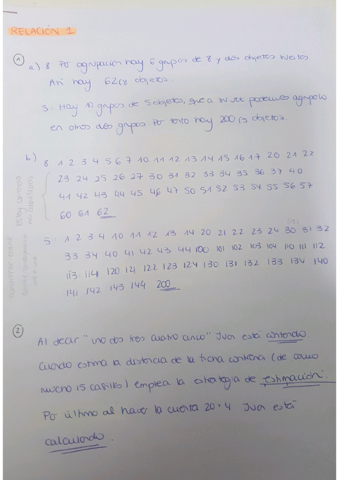 RELACIÓN 1
① a) 8 Por agrupación hay 6 grupos de 8 y dos objetos sueltos
Así hay 62(8 objetos.
5: Hay 10 grupos de 5 objetos, que a su vez podemos agruparlo
en otros dos grupos Por tanto hay 200(5 objetos.
b) 8 1 2 3 4 5 6 7 10 11 12 13 14 15 16 17 20 21 22
23 24 25 26 27 30 31 32 33 34 35 36 37 40
41 42 43 44 45 46 47 50 51 52 53 54 55 56 57
60 61 62
5 1 2 3 4 10 11 12 13 14 20 21 22 23 24 30 31 32
33 34 40 41 42 43 44 100 101 102 103 104 110 111 112
113 114 120 121 122 123 124 130 131 132 133 134 140
141 142 143 144 200
②
Al decir "uno dos tres cuatro cinco" Juan está contando
Cuando estima la distancia de la (de como
mucho 15 ) emplea la estrategia de estimación.
Por último al hacer la cuenta 20·4 Juan está
calculando.